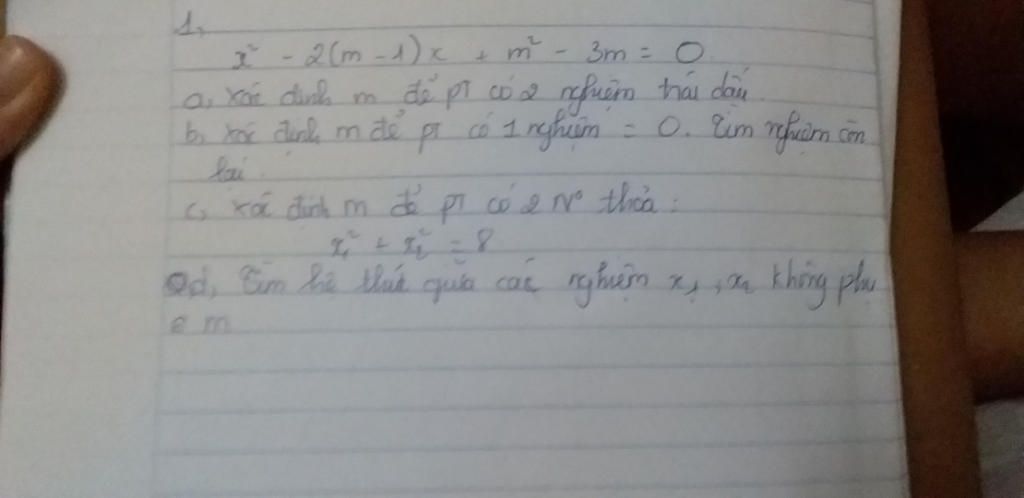 1,
x² - 2(m - 1)x + m² - 3m = 0
a, xác định m để pt có 2 nghiệm trái dấu.
b, xác định m để pt có 1 nghiệm = 0. Tìm nghiệm còn
lại.
c, xác định m để pt có 2 N⁰ thỏa :
x₁² + x₂² = 8
d, Tìm hệ thức giữa các nghiệm x₁, x₂ không phụ
m